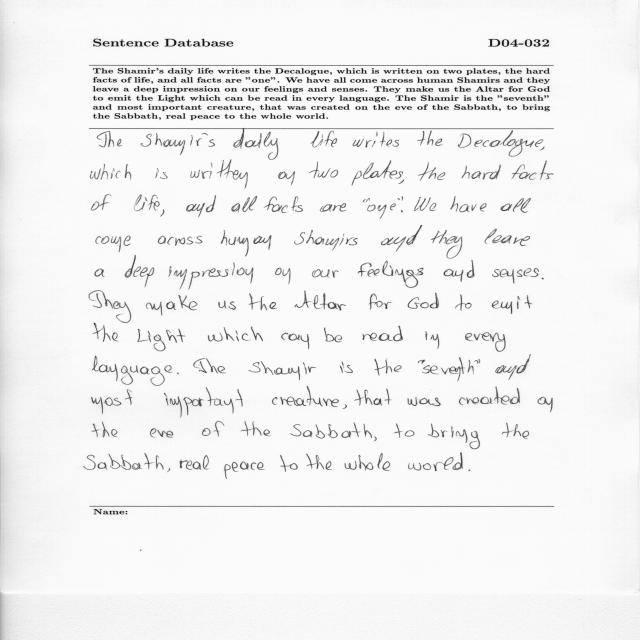 Sentence Database D04-032
The Shamir's daily life writes the Decalogue, which is written on two plates, the hard
facts of life, and all facts are "one". We have all come across human Shamirs and they
leave a deep impression on our feelings and senses. They make us the Altar for God
to emit the Light which can be read in every language. The Shamir is the "seventh"
and most important creature, that was created on the eve of the Sabbath, to bring
the Sabbath, real peace to the whole world.
The Shamir's daily life writes the Decalogue,
which is written on two plates, the hard facts
of life, and all facts are "one". We have all
come across human Shamirs and they leave
a deep impression on our feelings and senses.
They make us the Altar for God to emit
the Light which can be read in every
language. The Shamir is the "seventh" and
most important creature, that was created on
the eve of the Sabbath, to bring the
Sabbath, real peace to the whole world.
Name: